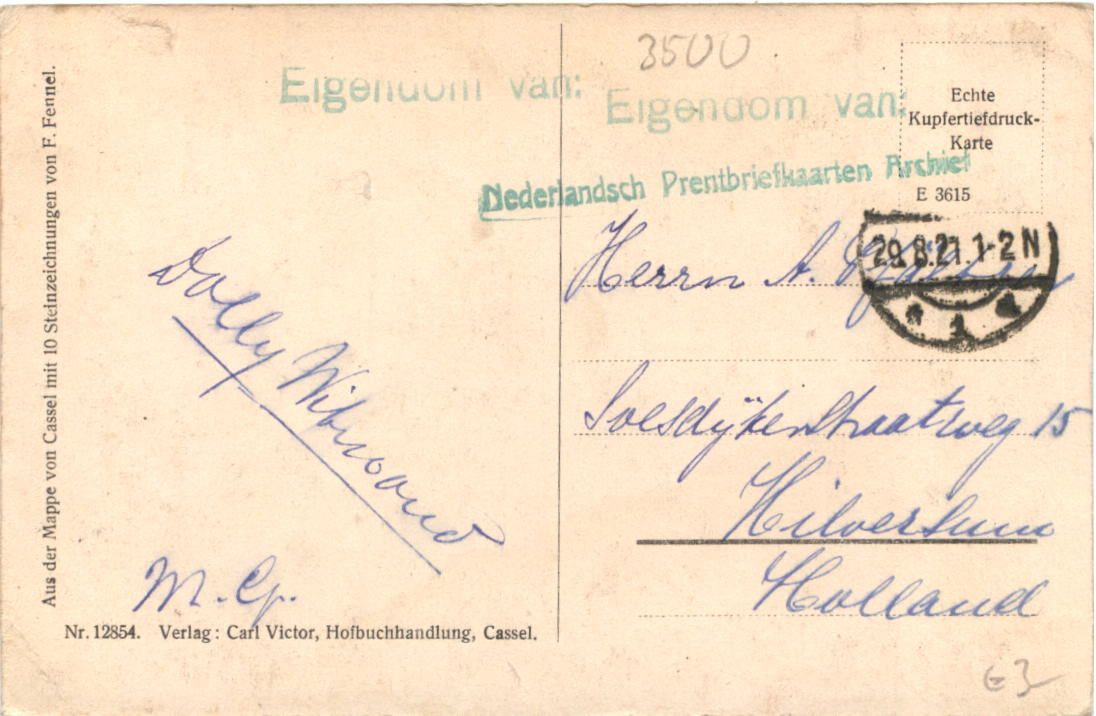 Aus der Mappe von Cassel mit 10 Steinzeichnungen von F. Fennel.
3500
Eigendom van:
Eigendom van:
Nederlandsch Prentbriefkaarten Archief
Echte
Kupfertiefdruck-
Karte
E 3615
29.8.21.1-2N
* 1 d
Herrn A.
Soesdijkerstraatweg 15
Hilversum
Holland
Dolly
M. Cp.
Nr. 12854. Verlag: Carl Victor, Hofbuchhandlung, Cassel.
€3